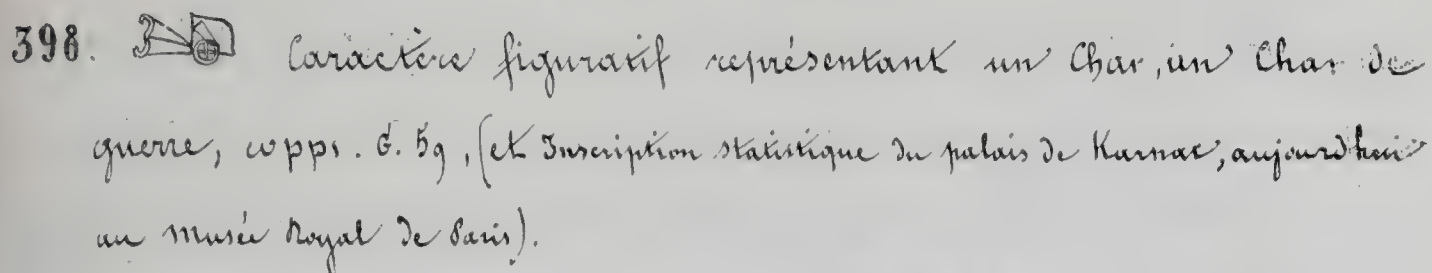 398. Caractère figuratif représentant un Char, un Char de
guerre, copps. G. 59, (et Inscription statistique du palais de Karnac, aujourdhui
au Musée Royal de Paris).